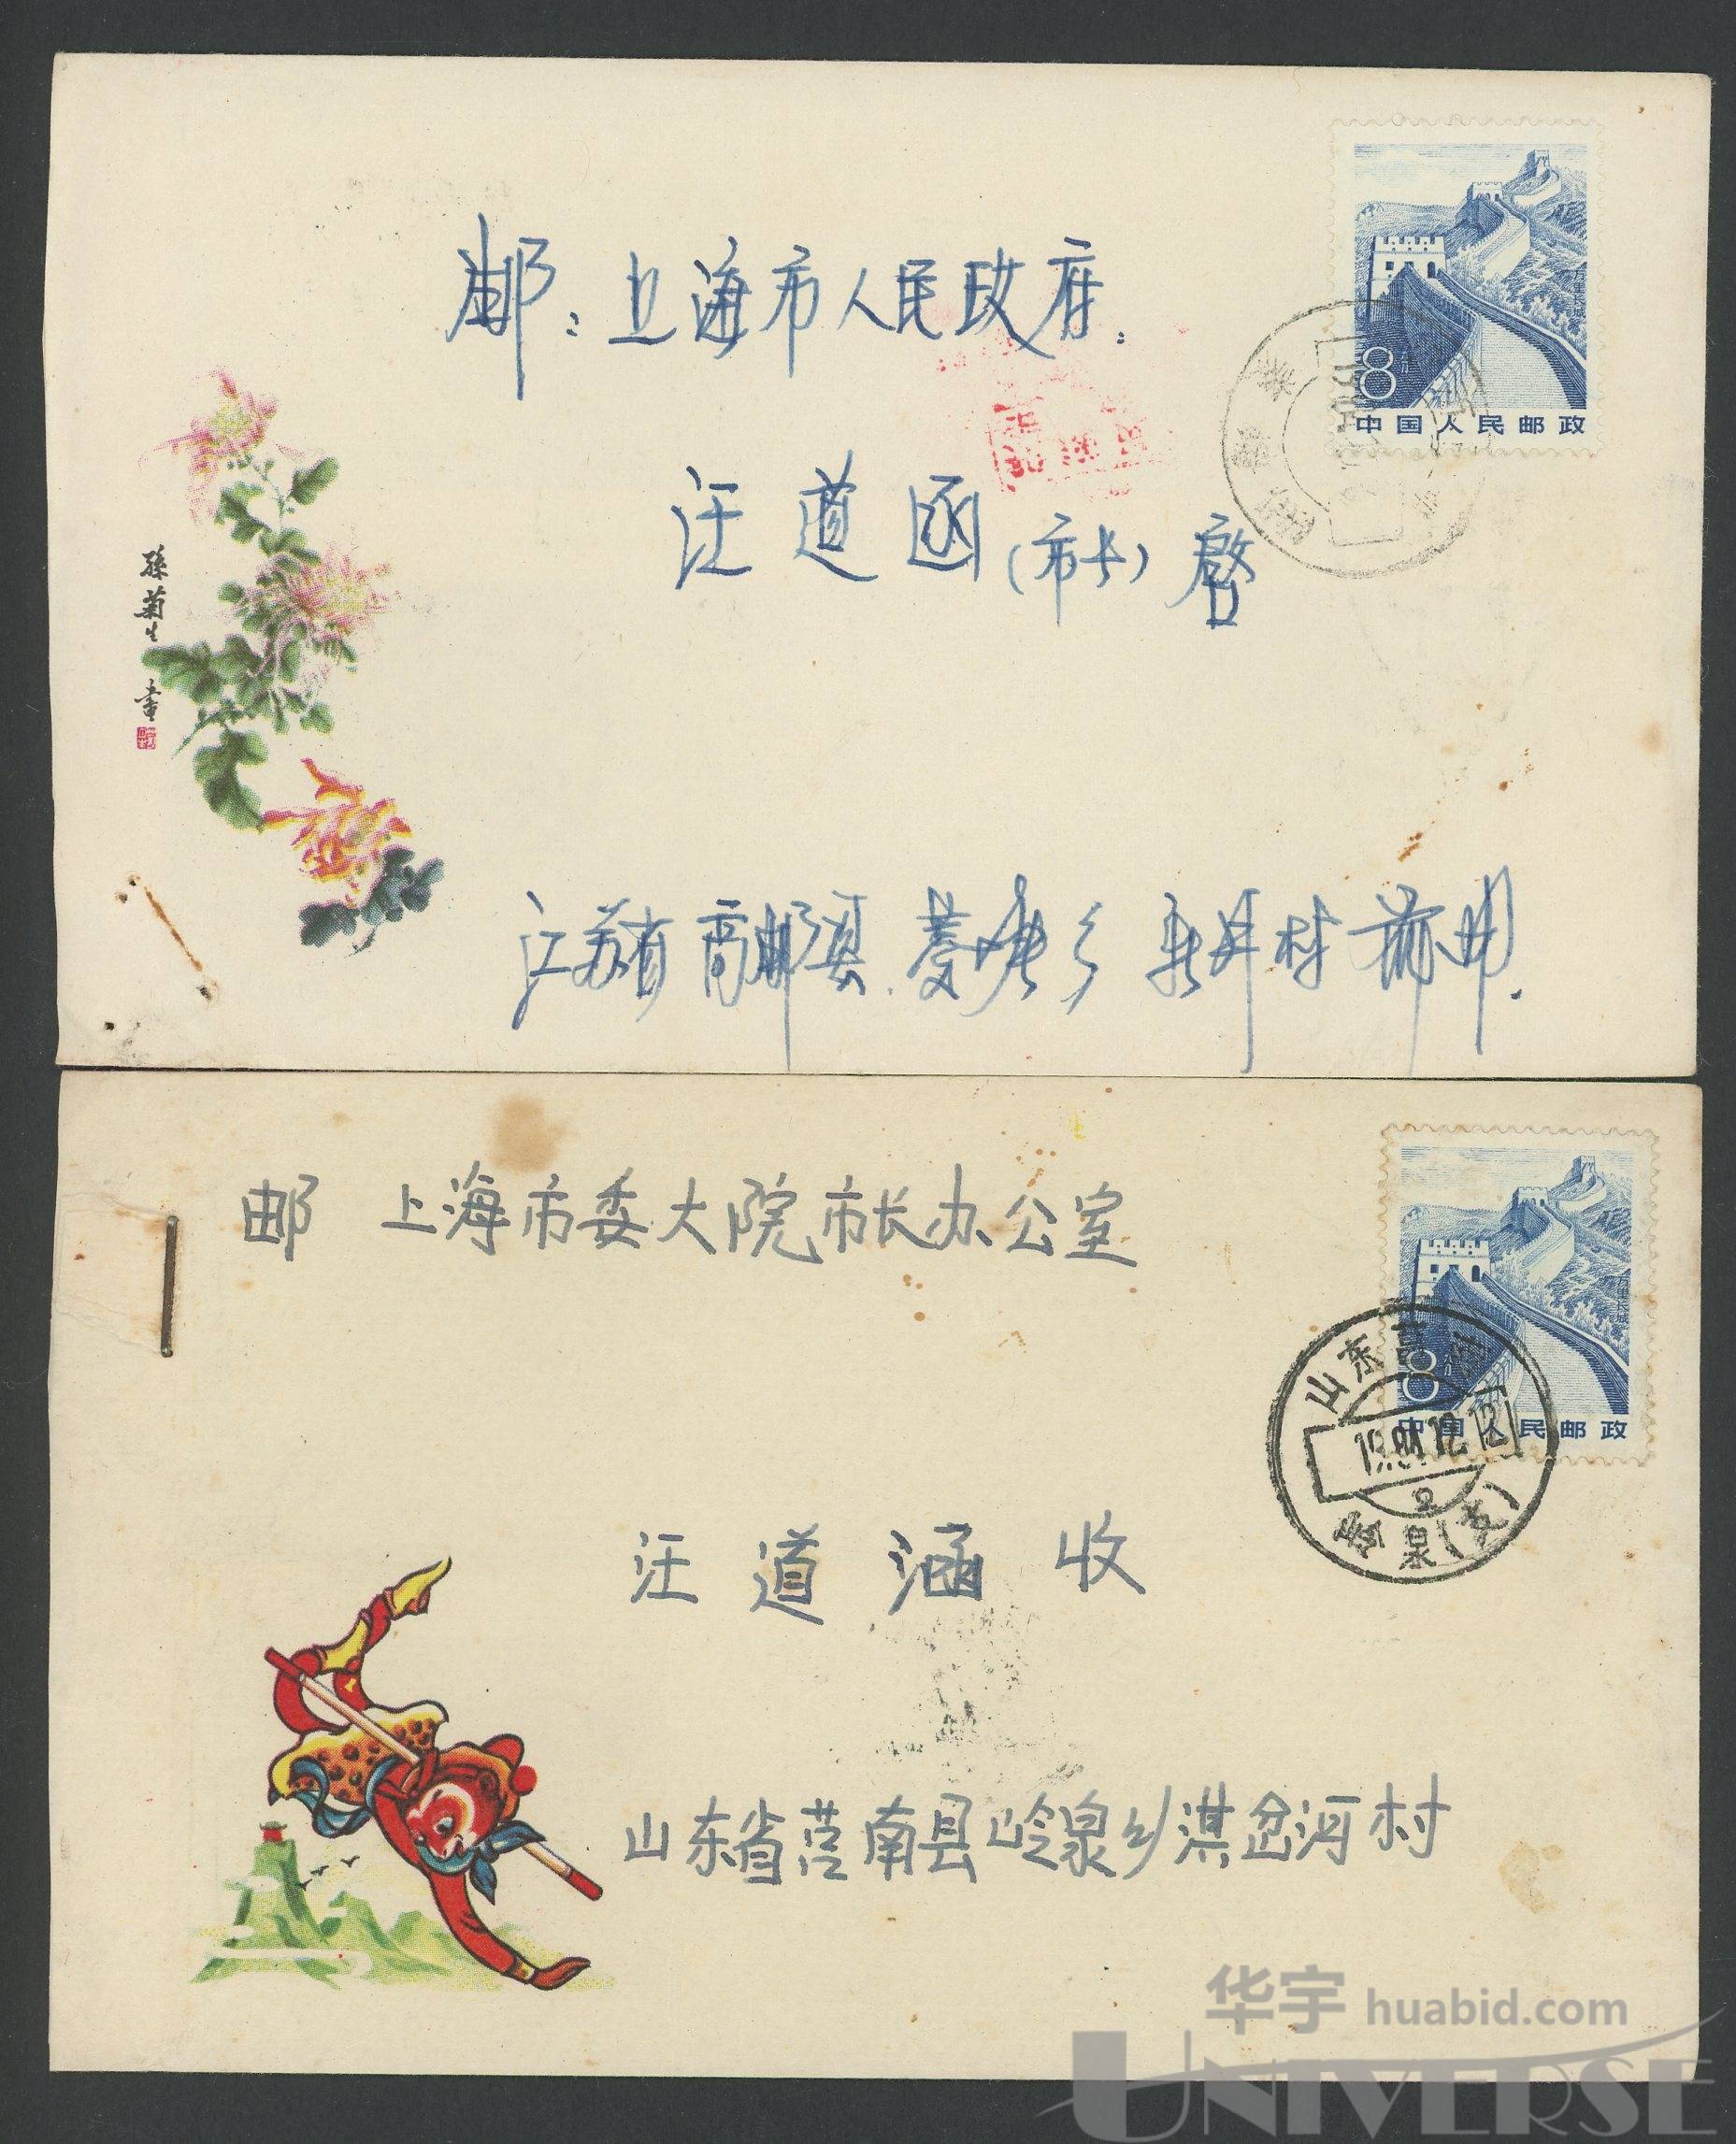 邮：上海市人民政府：
汪道函（市长）启
孫菊生畫
江苏省高邮县．菱塘乡
8分
万里长城
中国人民邮政
邮 上海市委大院市长办公室
汪道涵 收
山东省莒南县岭泉乡淇岔河村
8分
万里长城
中国人民邮政
山东莒南
1984.12.12
岭泉(支)
华宇 huabid.com
UNIVERSE